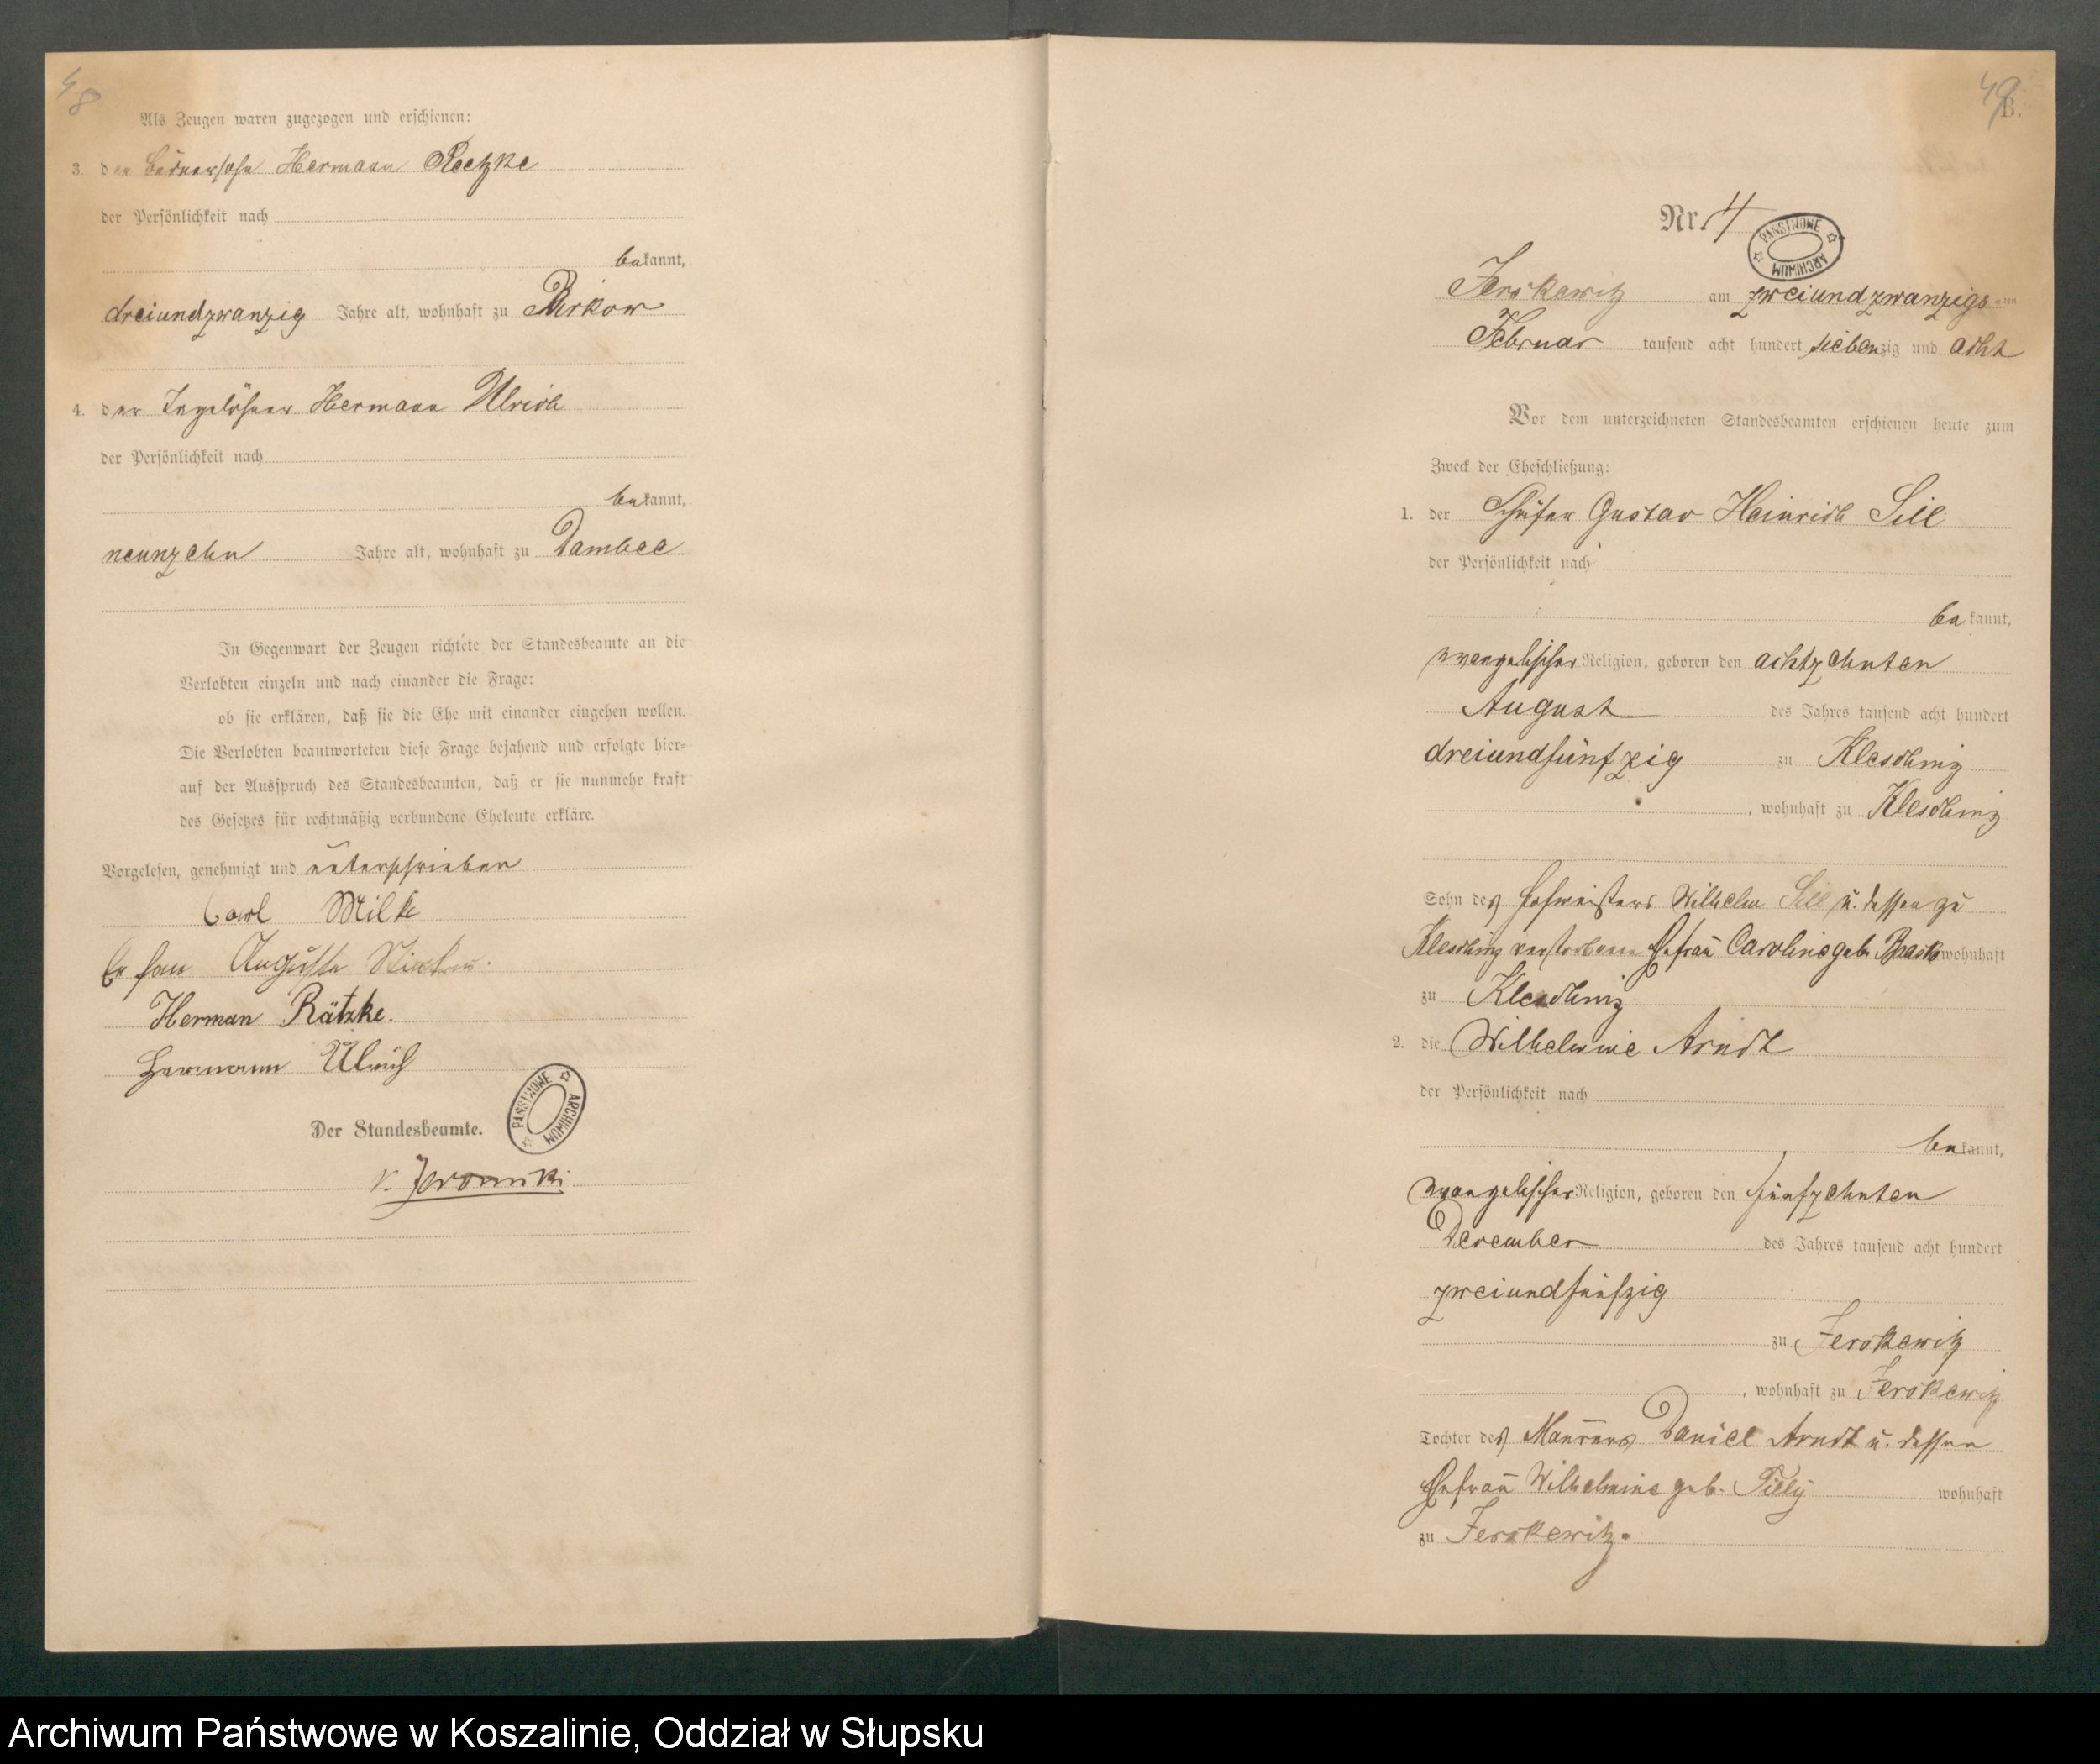 48
Als Zeugen waren zugezogen und erschienen:
3. der Büdnersohn Hermann Reetzke
der Persönlichkeit nach
bekannt,
dreiundzwanzig Jahre alt, wohnhaft zu Birkow
4. der Tagelöhner Hermann Ulrich
der Persönlichkeit nach
bekannt,
neunzehn Jahre alt, wohnhaft zu Dambee
In Gegenwart der Zeugen richtete der Standesbeamte an die
Verlobten einzeln und nach einander die Frage:
ob sie erklären, daß sie die Ehe mit einander eingehen wollen.
Die Verlobten beantworteten diese Frage bejahend und erfolgte hier=
auf der Ausspruch des Standesbeamten, daß er sie nunmehr kraft
des Gesetzes für rechtmäßig verbundene Eheleute erkläre.
Vorgelesen, genehmigt und unterschrieben
Carl Milke
Auguste
Herman Rätzke.
Hermann Ulrich
Der Standesbeamte.
PAŃSTWOWE ARCHIWUM
49
B.
Nr. 4
PAŃSTWOWE ARCHIWUM
Jerskewitz am zweiundzwanzigsten
Februar tausend acht hundert siebenzig und acht
Vor dem unterzeichneten Standesbeamten erschienen heute zum
Zweck der Eheschließung:
1. der Schäfer Gustav Heinrich Sill
der Persönlichkeit nach
bekannt,
evangelischer Religion, geboren den achtzehnten
August des Jahres tausend acht hundert
dreiundfünfzig zu Kleschinz
, wohnhaft zu Kleschinz
Sohn des Hofmeisters Wilhelm Sill u. dessen zu
Kleschinz verstorbene Ehefrau Caroline geb. Baask wohnhaft
zu Kleschinz
2. die Wilhelmine Arndt
der Persönlichkeit nach
bekannt,
evangelischer Religion, geboren den fünfzehnten
December des Jahres tausend acht hundert
zweiundfünfzig
zu Jerskewitz
, wohnhaft zu Jerskewitz
Tochter des Maurers Daniel Arndt u. dessen
Ehefrau Wilhelmine geb. Tilly wohnhaft
zu Jerskewitz.
Archiwum Państwowe w Koszalinie, Oddział w Słupsku